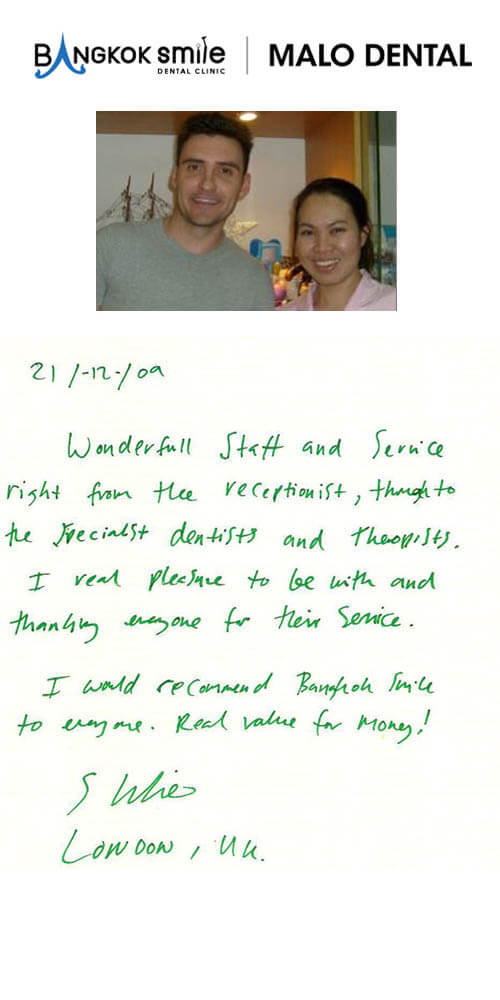 BANGKOK smile | MALO DENTAL
DENTAL CLINIC
21/-12-/09
Wonderfull Staff and Service
right from the receptionist, through to
the specialist dentists and
I real pleasure to be with and
thanking everyone for their Service.
I would recommend Bangkok Smile
to everyone. Real value for money!
S
London, UK.